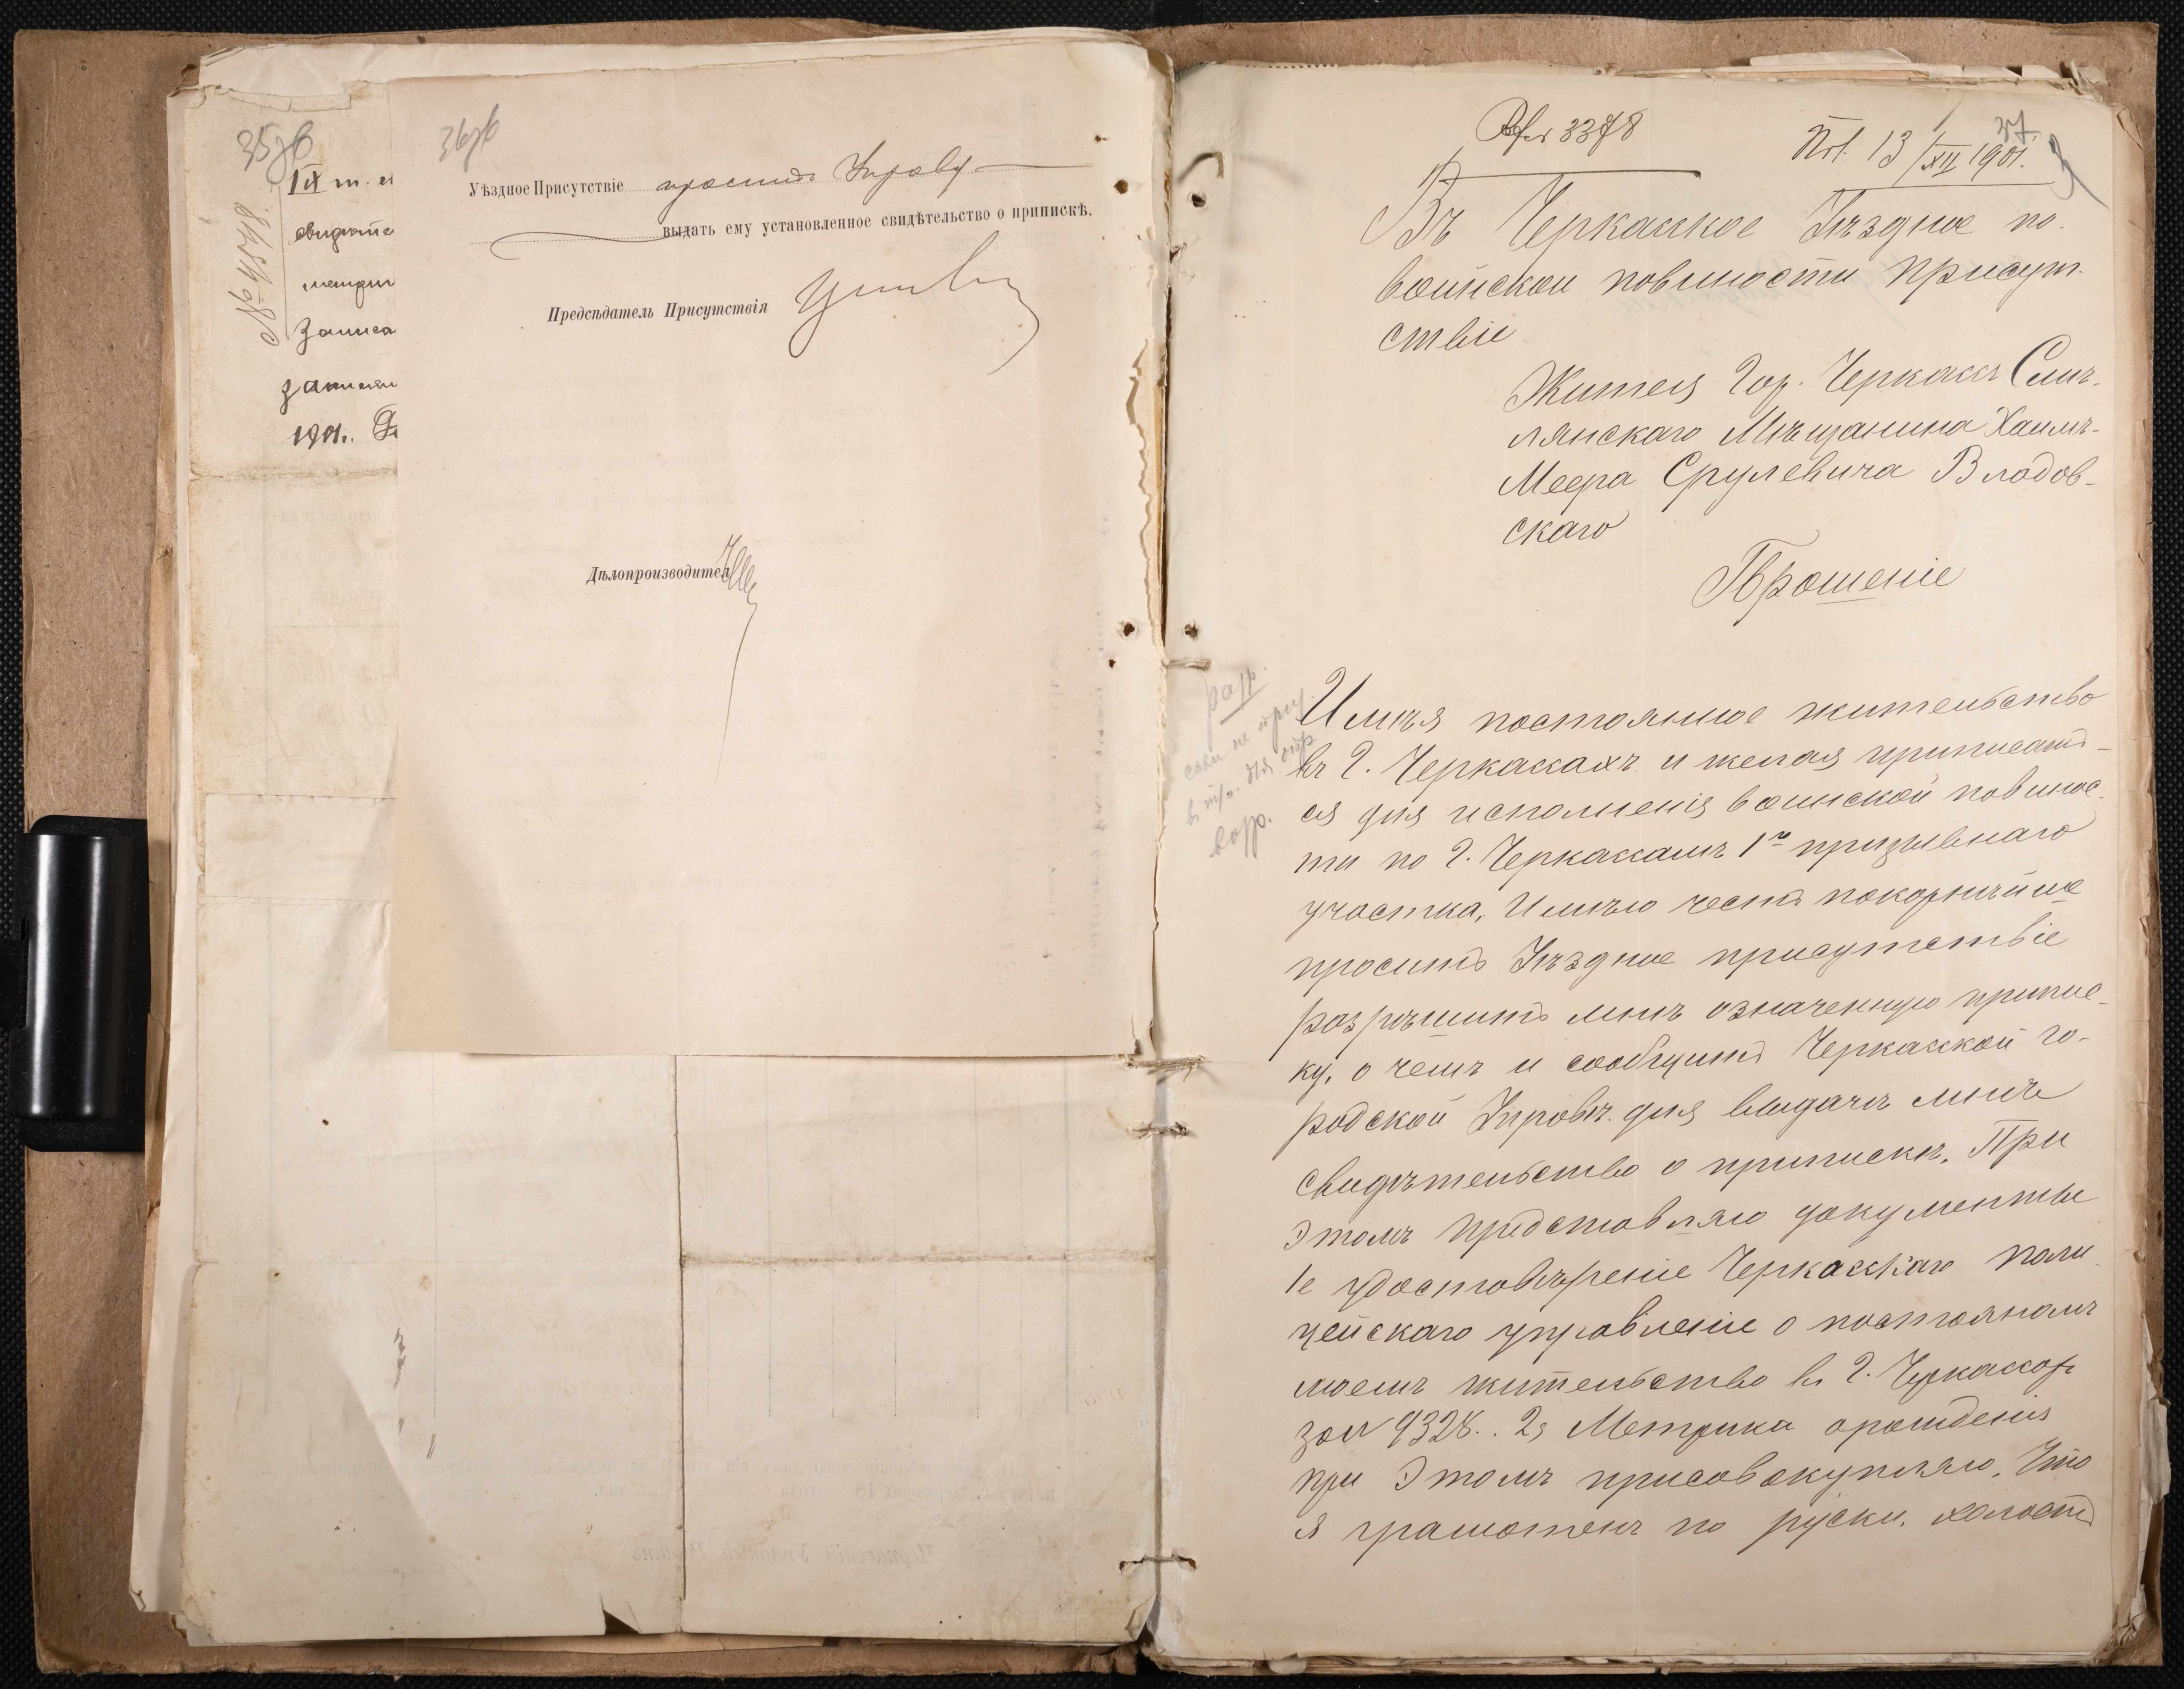 35зв
IX т.
свидѣте
Записа
1901.
36зв
Уѣздное Присутствіе проситъ Управу
выдать ему установленное свидѣтельство о припискѣ.
Предсѣдатель Присутствія
Дѣлопроизводитель
3378
37.
Пол. 13/XII 1901.
Въ Черкасское Уѣздное по
воинской повиности присут-
ствіе
Жителя Гор. Черкассъ Смѣ-
лянскаго Мѣщанина Хаимъ-
Меера Срулевича Владов-
скаго
Прошеніе
Имѣя постоянное жительство
въ г. Черкассахъ и желая приписать-
ся для исполненія воинской повинос-
ти по г. Черкассамъ 1го призывнаго
участка, Имѣю честь покорнѣйше
просить Уѣздное присутствіе
разрѣшить мнѣ означенную припис-
ку, о чемъ и сообщить Черкасской го-
родской Управѣ для выдачѣ мнѣ
свидѣтельство о припискѣ. При
этомъ представляю документы
1е удостовѣреніе Черкасскаго поли
цейскаго управленіе о постояномъ
моемъ жительство въ г. Черкассахъ
за № 9328.. 2, Метрика орожденія
при Этомъ присовокупляю, Что
я грамотенъ по руски, холостъ